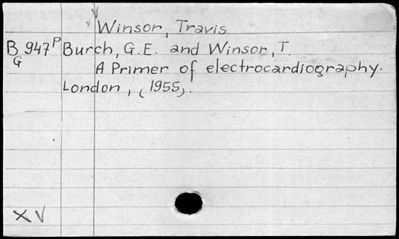 Winsor, Travis
B 947P Burch, G.E. and Winsor, T.
G
A Primer of electrocardiography.
London, (1955).
XV